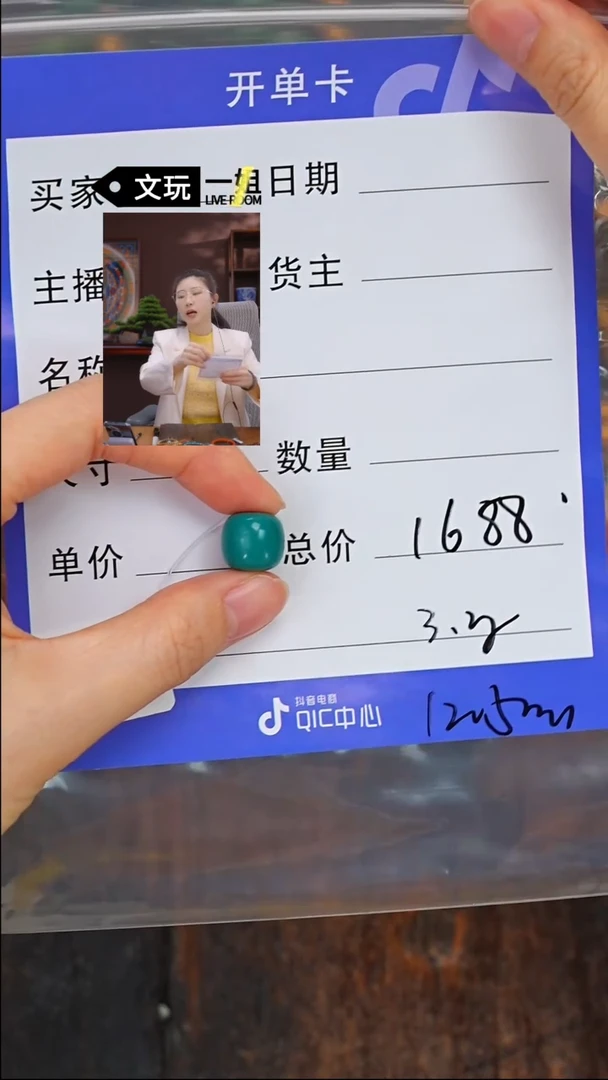 开单卡
买家 文玩 一姐 日期
LIVE ROOM
主播 货主
名称
尺寸 数量
单价 总价 1688
抖音电商
QIC中心